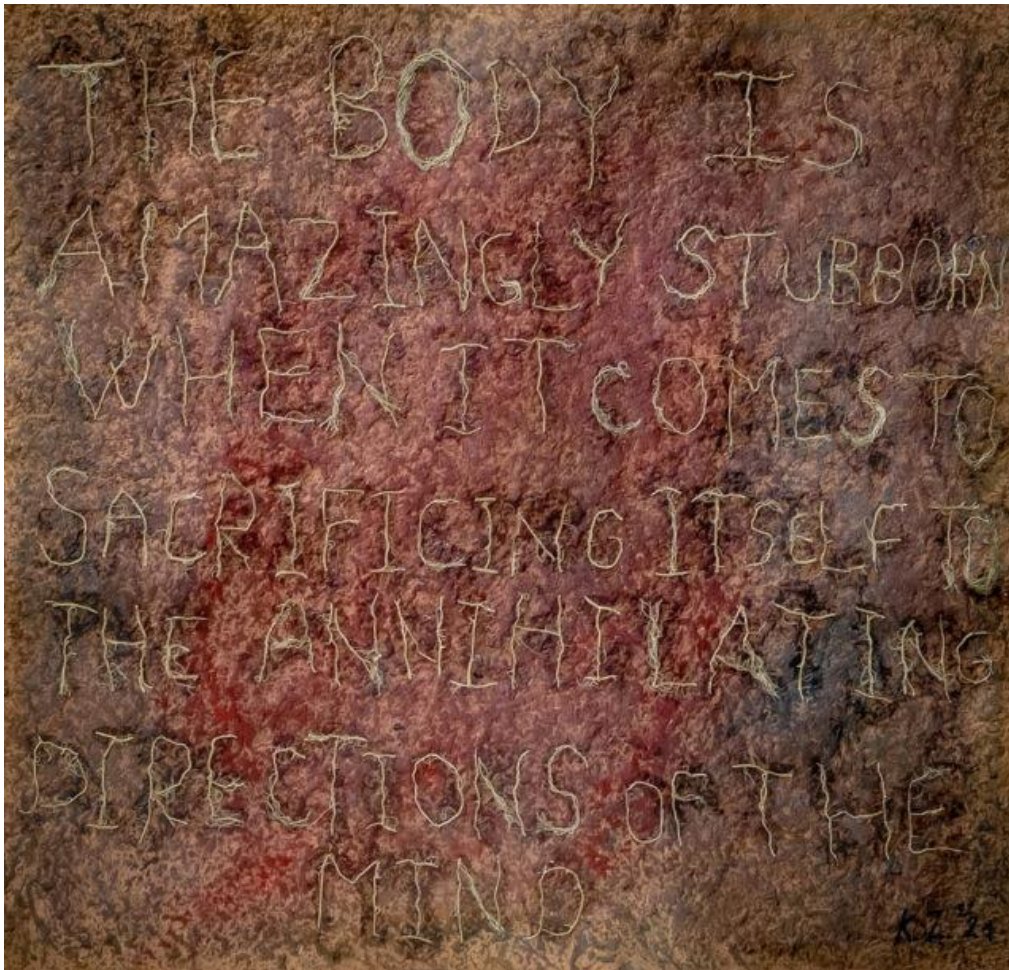 THE BODY IS
AMAZINGLY STUBBORN
WHEN IT COMES TO
SACRIFICING ITSELF TO
THE ANNIHILATING
DIRECTIONS OF THE
MIND
KZ